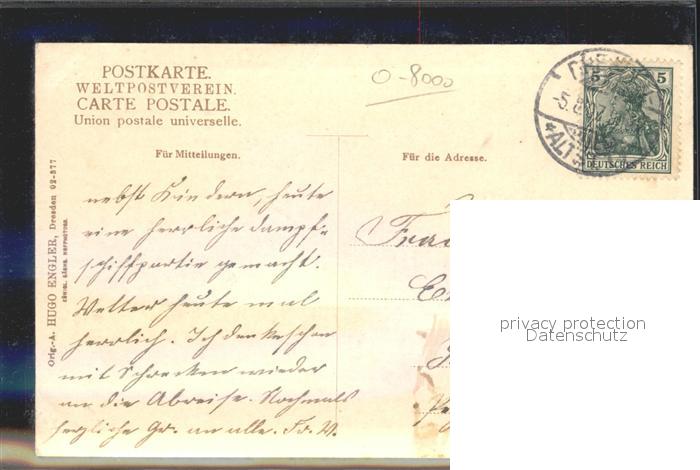 POSTKARTE.
WELTPOSTVEREIN.
CARTE POSTALE.
Union postale universelle.
0-8000
5 5
DEUTSCHES REICH
ALT
Für Mitteilungen.
Für die Adresse.
nebst Kindern, heute
eine herrliche Dampf-
schiffpartie gemacht.
Wetter heute mal
herrlich. Ich denke schon
mit Schrecken wieder
an die Abreise. Nochmals
herzliche Gr. an alle. Fr. W.
Frau
Orig.-A. HUGO ENGLER, Dresden 02-577
KÖNIGL. SÄCHS. HOFPHOTOGR.
privacy protection
Datenschutz